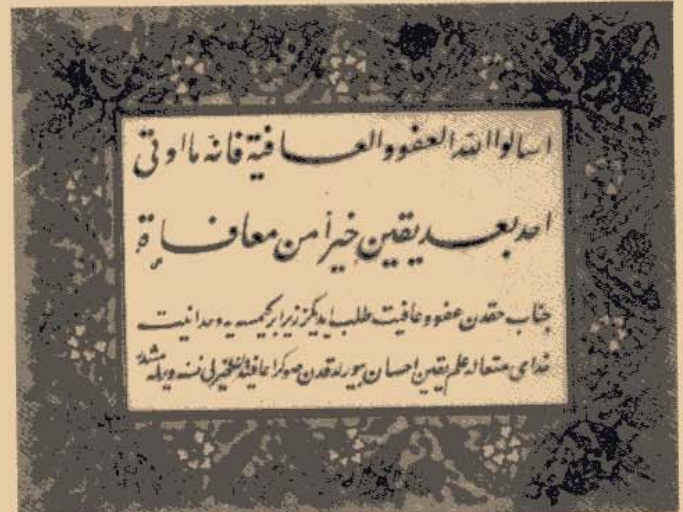 اسالوا الله العفو والعافية فانه ما اوتى
احد بعد يقين خيرا من معافاة
جناب حقدن عفو وعافيت طلب ايديكز زيرا بر كيمسه يه وحدانيت
خداى متعاله علم يقين احسان بيورلدقدن صوكرا عافيتدن خيرلى نسنه ويرلمه مشدر